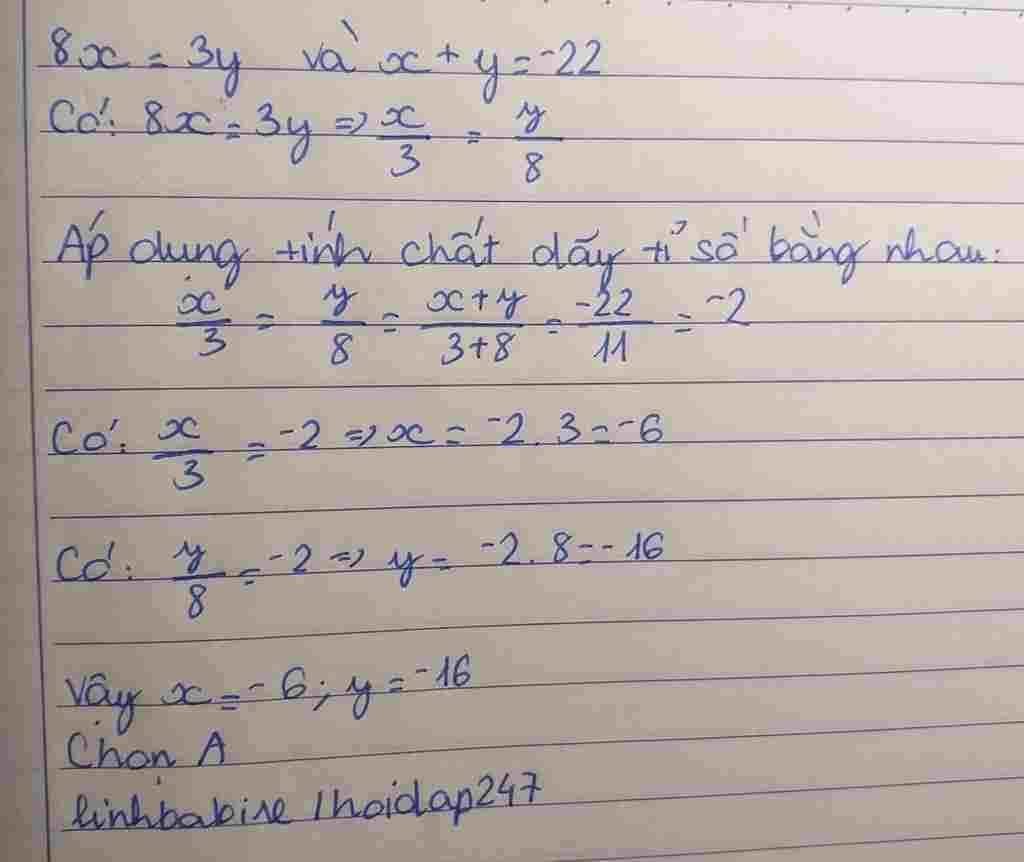 8x = 3y và x + y = -22
Có: 8x = 3y => x/3 = y/8
Áp dụng tính chất dãy tỉ số bằng nhau:
x/3 = y/8 = x+y/3+8 = -22/11 = -2
Có: x/3 = -2 => x = -2. 3 = -6
Có: y/8 = -2 => y = -2. 8 = -16
Vậy x = -6; y = -16
Chọn A
linhbabixe / hoidap247